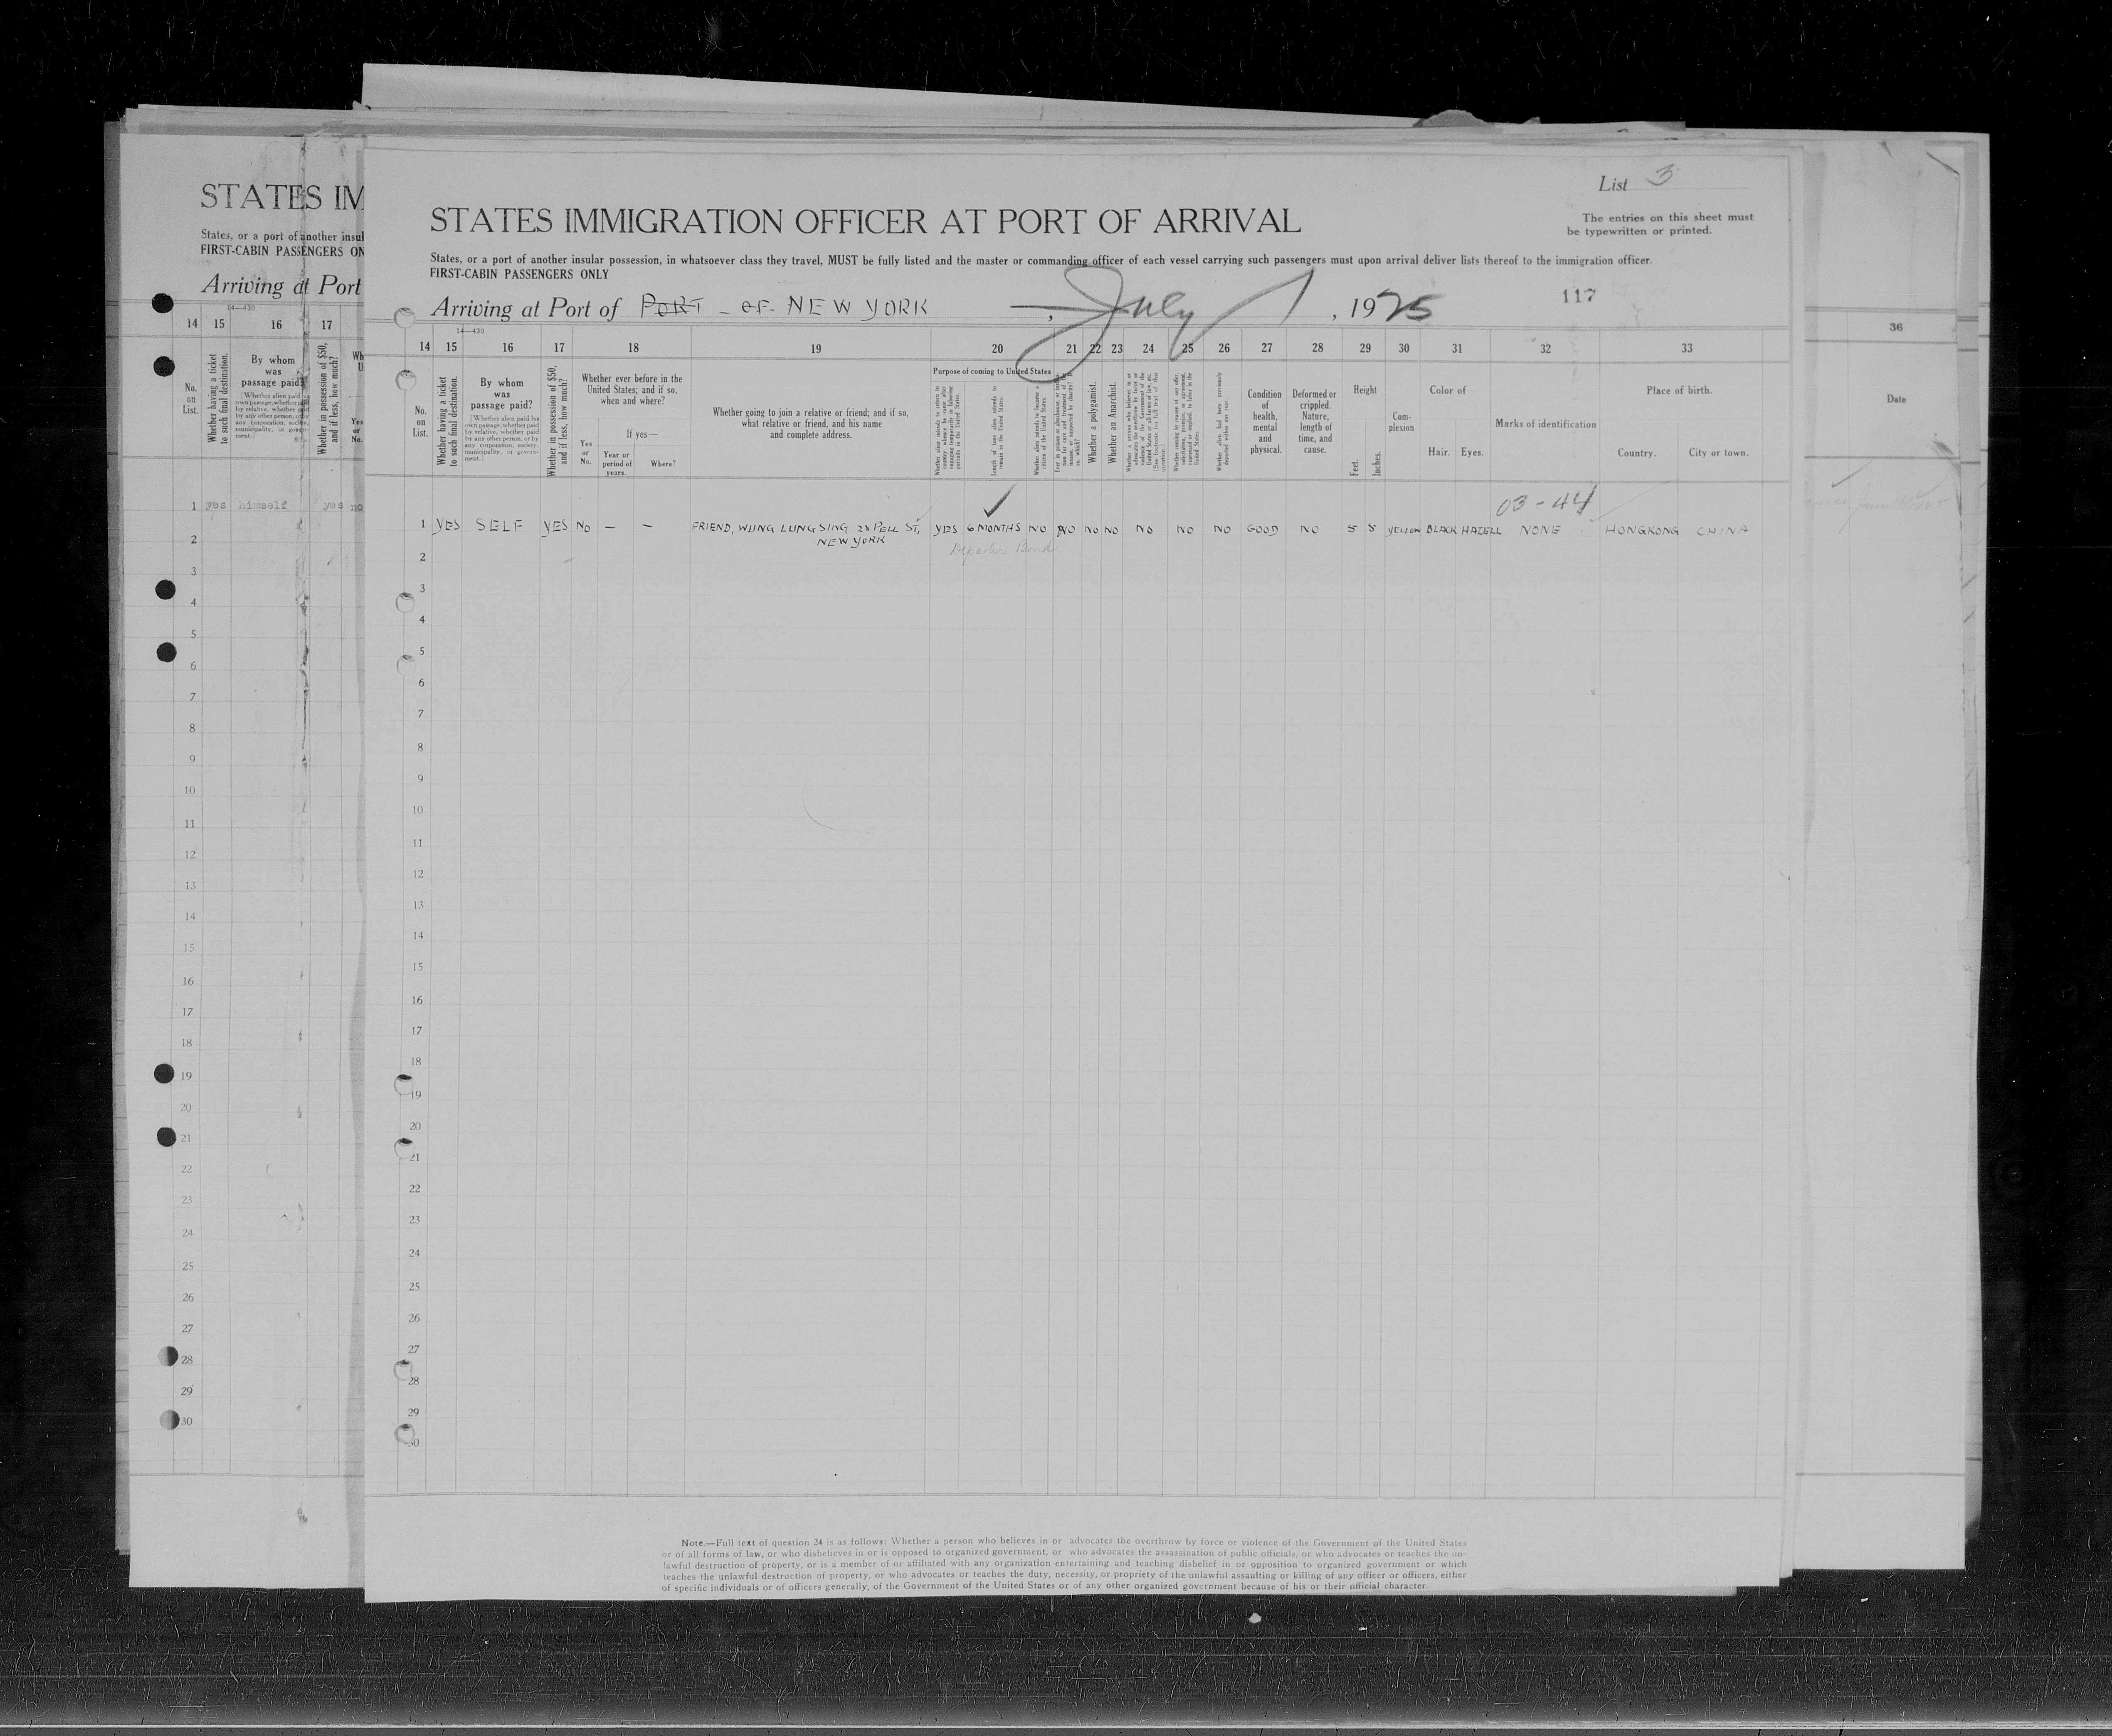 STATES IM
States, or a port of another insul
FIRST-CABIN PASSENGERS ON
Arriving at Port
14—430
14 15 16 17
No. on List.
Whether having a ticket to such final destination.
By whom was passage paid?
Whether in possession of $50, and if less, how much?
Yes or No.
1 yes himself yes no
2
3
4
5
6
7
8
9
10
11
12
13
14
15
16
17
18
19
20
21
22
23
24
25
26
27
28
29
30
List 3
STATES IMMIGRATION OFFICER AT PORT OF ARRIVAL
The entries on this sheet must
be typewritten or printed.
States, or a port of another insular possession, in whatsoever class they travel, MUST be fully listed and the master or commanding officer of each vessel carrying such passengers must upon arrival deliver lists thereof to the immigration officer.
FIRST-CABIN PASSENGERS ONLY
Arriving at Port of PORT - OF - NEW YORK , July 1 , 1925
117
14—430
14 15 16 17 18 19 20 21 22 23 24 25 26 27 28 29 30 31 32 33
No. on List.
Whether having a ticket to such final destination.
By whom was passage paid?
(Whether alien paid his own passage, whether paid by relative, whether paid by any other person, or by any corporation, society, municipality, or government.)
Whether in possession of $50, and if less, how much?
Whether ever before in the United States; and if so, when and where?
Yes or No.
If yes—
Year or period of years.
Where?
Whether going to join a relative or friend; and if so, what relative or friend, and his name and complete address.
Purpose of coming to United States
Length of time alien intends to remain in the United States.
Whether alien intends to become a citizen of the United States.
Whether a polygamist.
Whether an Anarchist.
Condition of health, mental and physical.
Deformed or crippled. Nature, length of time, and cause.
Height
Feet. Inches.
Com-plexion
Color of
Hair. Eyes.
Marks of identification
Place of birth.
Country. City or town.
03-44
1 YES SELF YES NO — — FRIEND, WUNG LUNG SING 28 PELL ST, YES 6 MONTHS NO NO NO NO NO NO NO GOOD NO 5 5 YELLOW BLACK HAZELL NONE HONGKONG CHINA
NEW YORK
Departure Bond
2
3
4
5
6
7
8
9
10
11
12
13
14
15
16
17
18
19
20
21
22
23
24
25
26
27
28
29
30
36
Date
Note.—Full text of question 24 is as follows: Whether a person who believes in or advocates the overthrow by force or violence of the Government of the United States
or of all forms of law, or who disbelieves in or is opposed to organized government, or who advocates the assassination of public officials, or who advocates or teaches the un-
lawful destruction of property, or is a member of or affiliated with any organization entertaining and teaching disbelief in or opposition to organized government or which
teaches the unlawful destruction of property, or who advocates or teaches the duty, necessity, or propriety of the unlawful assaulting or killing of any officer or officers, either
of specific individuals or of officers generally, of the Government of the United States or of any other organized government because of his or their official character.